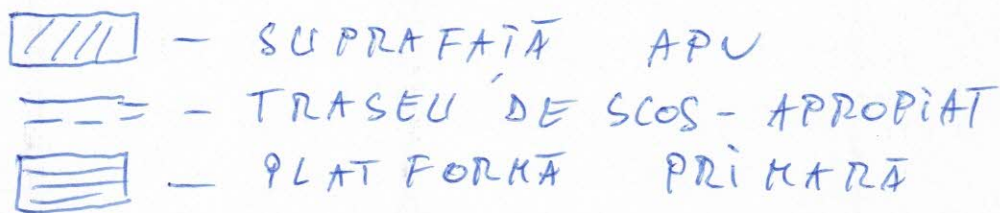 - SUPRAFAȚĂ APV
- TRASEU DE SCOS - APROPIAT
- PLATFORMĂ PRIMARĂ